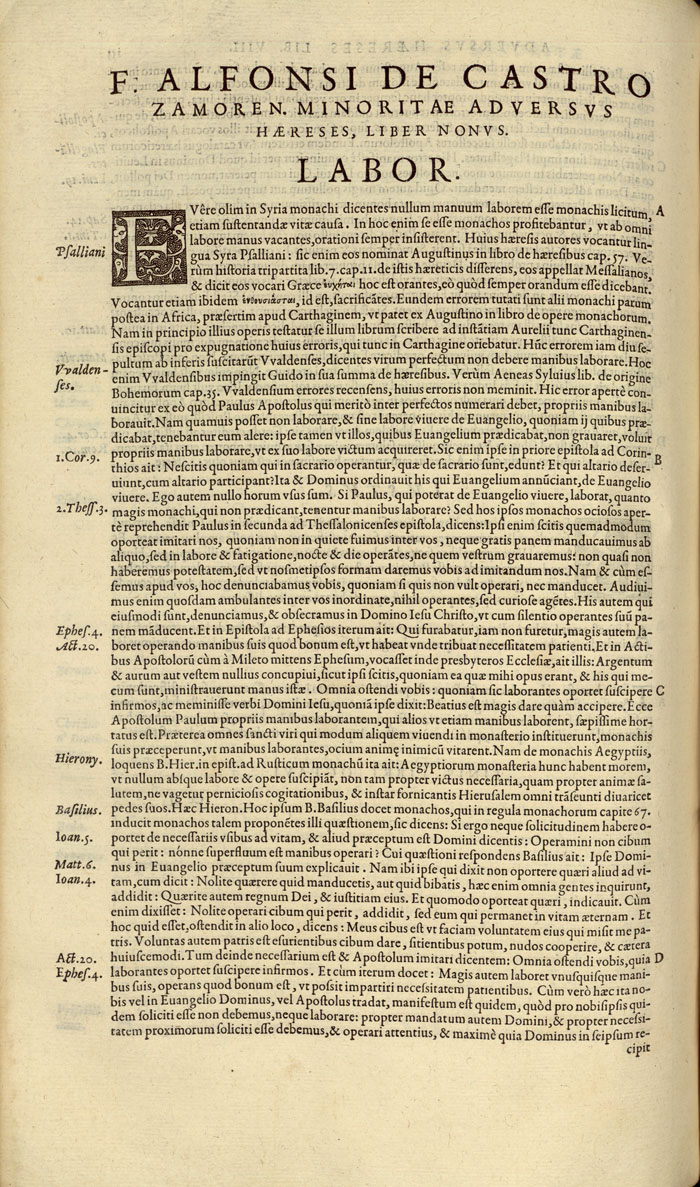 F. ALFONSI DE CASTRO
ZAMOREN. MINORITAE ADVERSVS
HÆRESES, LIBER NONVS.
LABOR.
FVêre olim in Syria monachi dicentes nullum manuum laborem esse monachis licitum, A
etiam sustentandæ vitæ causa. In hoc enim se esse monachos profitebantur, vt ab omni
labore manus vacantes, orationi semper insisterent. Huius hæresis autores vocantur lin-
Psalliani
gua Syra Psalliani: sic enim eos nominat Augustinus in libro de hæresibus cap. 57. Ve-
rùm historia tripartita lib. 7. cap. 11. de istis hæreticis disserens, eos appellat Messalianos,
& dicit eos vocari Græce ἐυχήται hoc est orantes, eò quòd semper orandum esse dicebant.
Vocantur etiam ibidem ἐνθουσιάσται, id est, sacrificātes. Eundem errorem tutati sunt alii monachi parum
postea in Africa, præsertim apud Carthaginem, vt patet ex Augustino in libro de opere monachorum.
Nam in principio illius operis testatur se illum librum scribere ad instātiam Aurelii tunc Carthaginen-
sis episcopi pro expugnatione huius erroris, qui tunc in Carthagine oriebatur. Hūc errorem iam diu se-
Vvalden-
ses.
pultum ab inferis suscitarūt Vvaldenses, dicentes virum perfectum non debere manibus laborare. Hoc
enim Vvaldensibus impingit Guido in sua summa de hæresibus. Verùm Aeneas Syluius lib. de origine
Bohemorum cap. 35. Vvaldensium errores recensens, huius erroris non meminit. Hic error apertè con-
uincitur ex eò quòd Paulus Apostolus qui meritò inter perfectos numerari debet, propriis manibus la-
borauit. Nam quamuis posset non laborare, & sine labore viuere de Euangelio, quoniam ij quibus præ-
dicabat, tenebantur eum alere: ipse tamen vt illos, quibus Euangelium prædicabat, non grauaret, voluit
1. Cor. 9.
propriis manibus laborare, vt ex suo labore victum acquireret. Sic enim ipse in priore epistola ad Corin- B
thios ait: Nescitis quoniam qui in sacrario operantur, quæ de sacrario sunt, edunt? Et qui altario deser-
uiunt, cum altario participant? Ita & Dominus ordinauit his qui Euangelium annūciant, de Euangelio
viuere. Ego autem nullo horum vsus sum. Si Paulus, qui poterat de Euangelio viuere, laborat, quanto
2. Thess. 3.
magis monachi, qui non prædicant, tenentur manibus laborare? Sed hos ipsos monachos ociosos aper-
tè reprehendit Paulus in secunda ad Thessalonicenses epistola, dicens: Ipsi enim scitis quemadmodum
oporteat imitari nos, quoniam non in quiete fuimus inter vos, neque gratis panem manducauimus ab
aliquo, sed in labore & fatigatione, nocte & die operātes, ne quem vestrum grauaremus: non quasi non
haberemus potestatem, sed vt nosmetipsos formam daremus vobis ad imitandum nos. Nam & cùm es-
semus apud vos, hoc denunciabamus vobis, quoniam si quis non vult operari, nec manducet. Audiui-
mus enim quosdam ambulantes inter vos inordinate, nihil operantes, sed curiose agētes. His autem qui
eiusmodi sunt, denunciamus, & obsecramus in Domino Iesu Christo, vt cum silentio operantes suū pa-
Ephes. 4.
nem māducent. Et in Epistola ad Ephesios iterum ait: Qui furabatur, iam non furetur, magis autem la-
Act. 20.
boret operando manibus suis quod bonum est, vt habeat vnde tribuat necessitatem patienti. Et in Acti-
bus Apostolorū cùm à Mileto mittens Ephesum, vocasset inde presbyteros Ecclesiæ, ait illis: Argentum
& aurum aut vestem nullius concupiui, sicut ipsi scitis, quoniam ea quæ mihi opus erant, & his qui me-
cum sunt, ministrauerunt manus istæ. Omnia ostendi vobis: quoniam sic laborantes oportet suscipere C
infirmos, ac meminisse verbi Domini Iesu, quoniā ipse dixit: Beatius est magis dare quàm accipere. Ecce
Apostolum Paulum propriis manibus laborantem, qui alios vt etiam manibus laborent, sæpissime hor-
tatus est. Præterea omnes sancti viri qui modum aliquem viuendi in monasterio instituerunt, monachis
suis præceperunt, vt manibus laborantes, ocium animę inimicū vitarent. Nam de monachis Aegyptiis,
Hierony.
loquens B. Hier. in epist. ad Rusticum monachū ita ait: Aegyptiorum monasteria hunc habent morem,
vt nullum absque labore & opere suscipiāt, non tam propter victus necessaria, quam propter animæ sa-
lutem, ne vagetur perniciosis cogitationibus, & instar fornicantis Hierusalem omni trāseunti diuaricet
Basilius.
pedes suos. Hæc Hieron. Hoc ipsum B. Basilius docet monachos, qui in regula monachorum capite 67.
inducit monachos talem proponētes illi quæstionem, sic dicens: Si ergo neque solicitudinem habere o-
Ioan. 5.
portet de necessariis vsibus ad vitam, & aliud præceptum est Domini dicentis: Operamini non cibum
qui perit: nónne superfluum est manibus operari? Cui quæstioni respondens Basilius ait: Ipse Domi-
Matt. 6.
nus in Euangelio præceptum suum explicauit. Nam ibi ipse qui dixit non oportere quæri aliud ad vi-
Ioan. 4.
tam, cum dicit: Nolite quærere quid manducetis, aut quid bibatis, hæc enim omnia gentes inquirunt,
addidit: Quærite autem regnum Dei, & iustitiam eius. Et quomodo oporteat quæri, indicauit. Cùm
enim dixisset: Nolite operari cibum qui perit, addidit, sed eum qui permanet in vitam æternam. Et
hoc quid esset, ostendit in alio loco, dicens: Meus cibus est vt faciam voluntatem eius qui misit me pa-
tris. Voluntas autem patris est esurientibus cibum dare, sitientibus potum, nudos cooperire, & cætera
Act. 20.
huiuscemodi. Tum deinde necessarium est & Apostolum imitari dicentem: Omnia ostendi vobis, quia D
Ephes. 4.
laborantes oportet suscipere infirmos. Et cùm iterum docet: Magis autem laboret vnusquisque mani-
bus suis, operans quod bonum est, vt possit impartiri necessitatem patientibus. Cùm verò hæc ita no-
bis vel in Euangelio Dominus, vel Apostolus tradat, manifestum est quidem, quòd pro nobisipsis qui-
dem soliciti esse non debemus, neque laborare: propter mandatum autem Domini, & propter necessi-
tatem proximorum soliciti esse debemus, & operari attentius, & maximè quia Dominus in seipsum re-
cipit